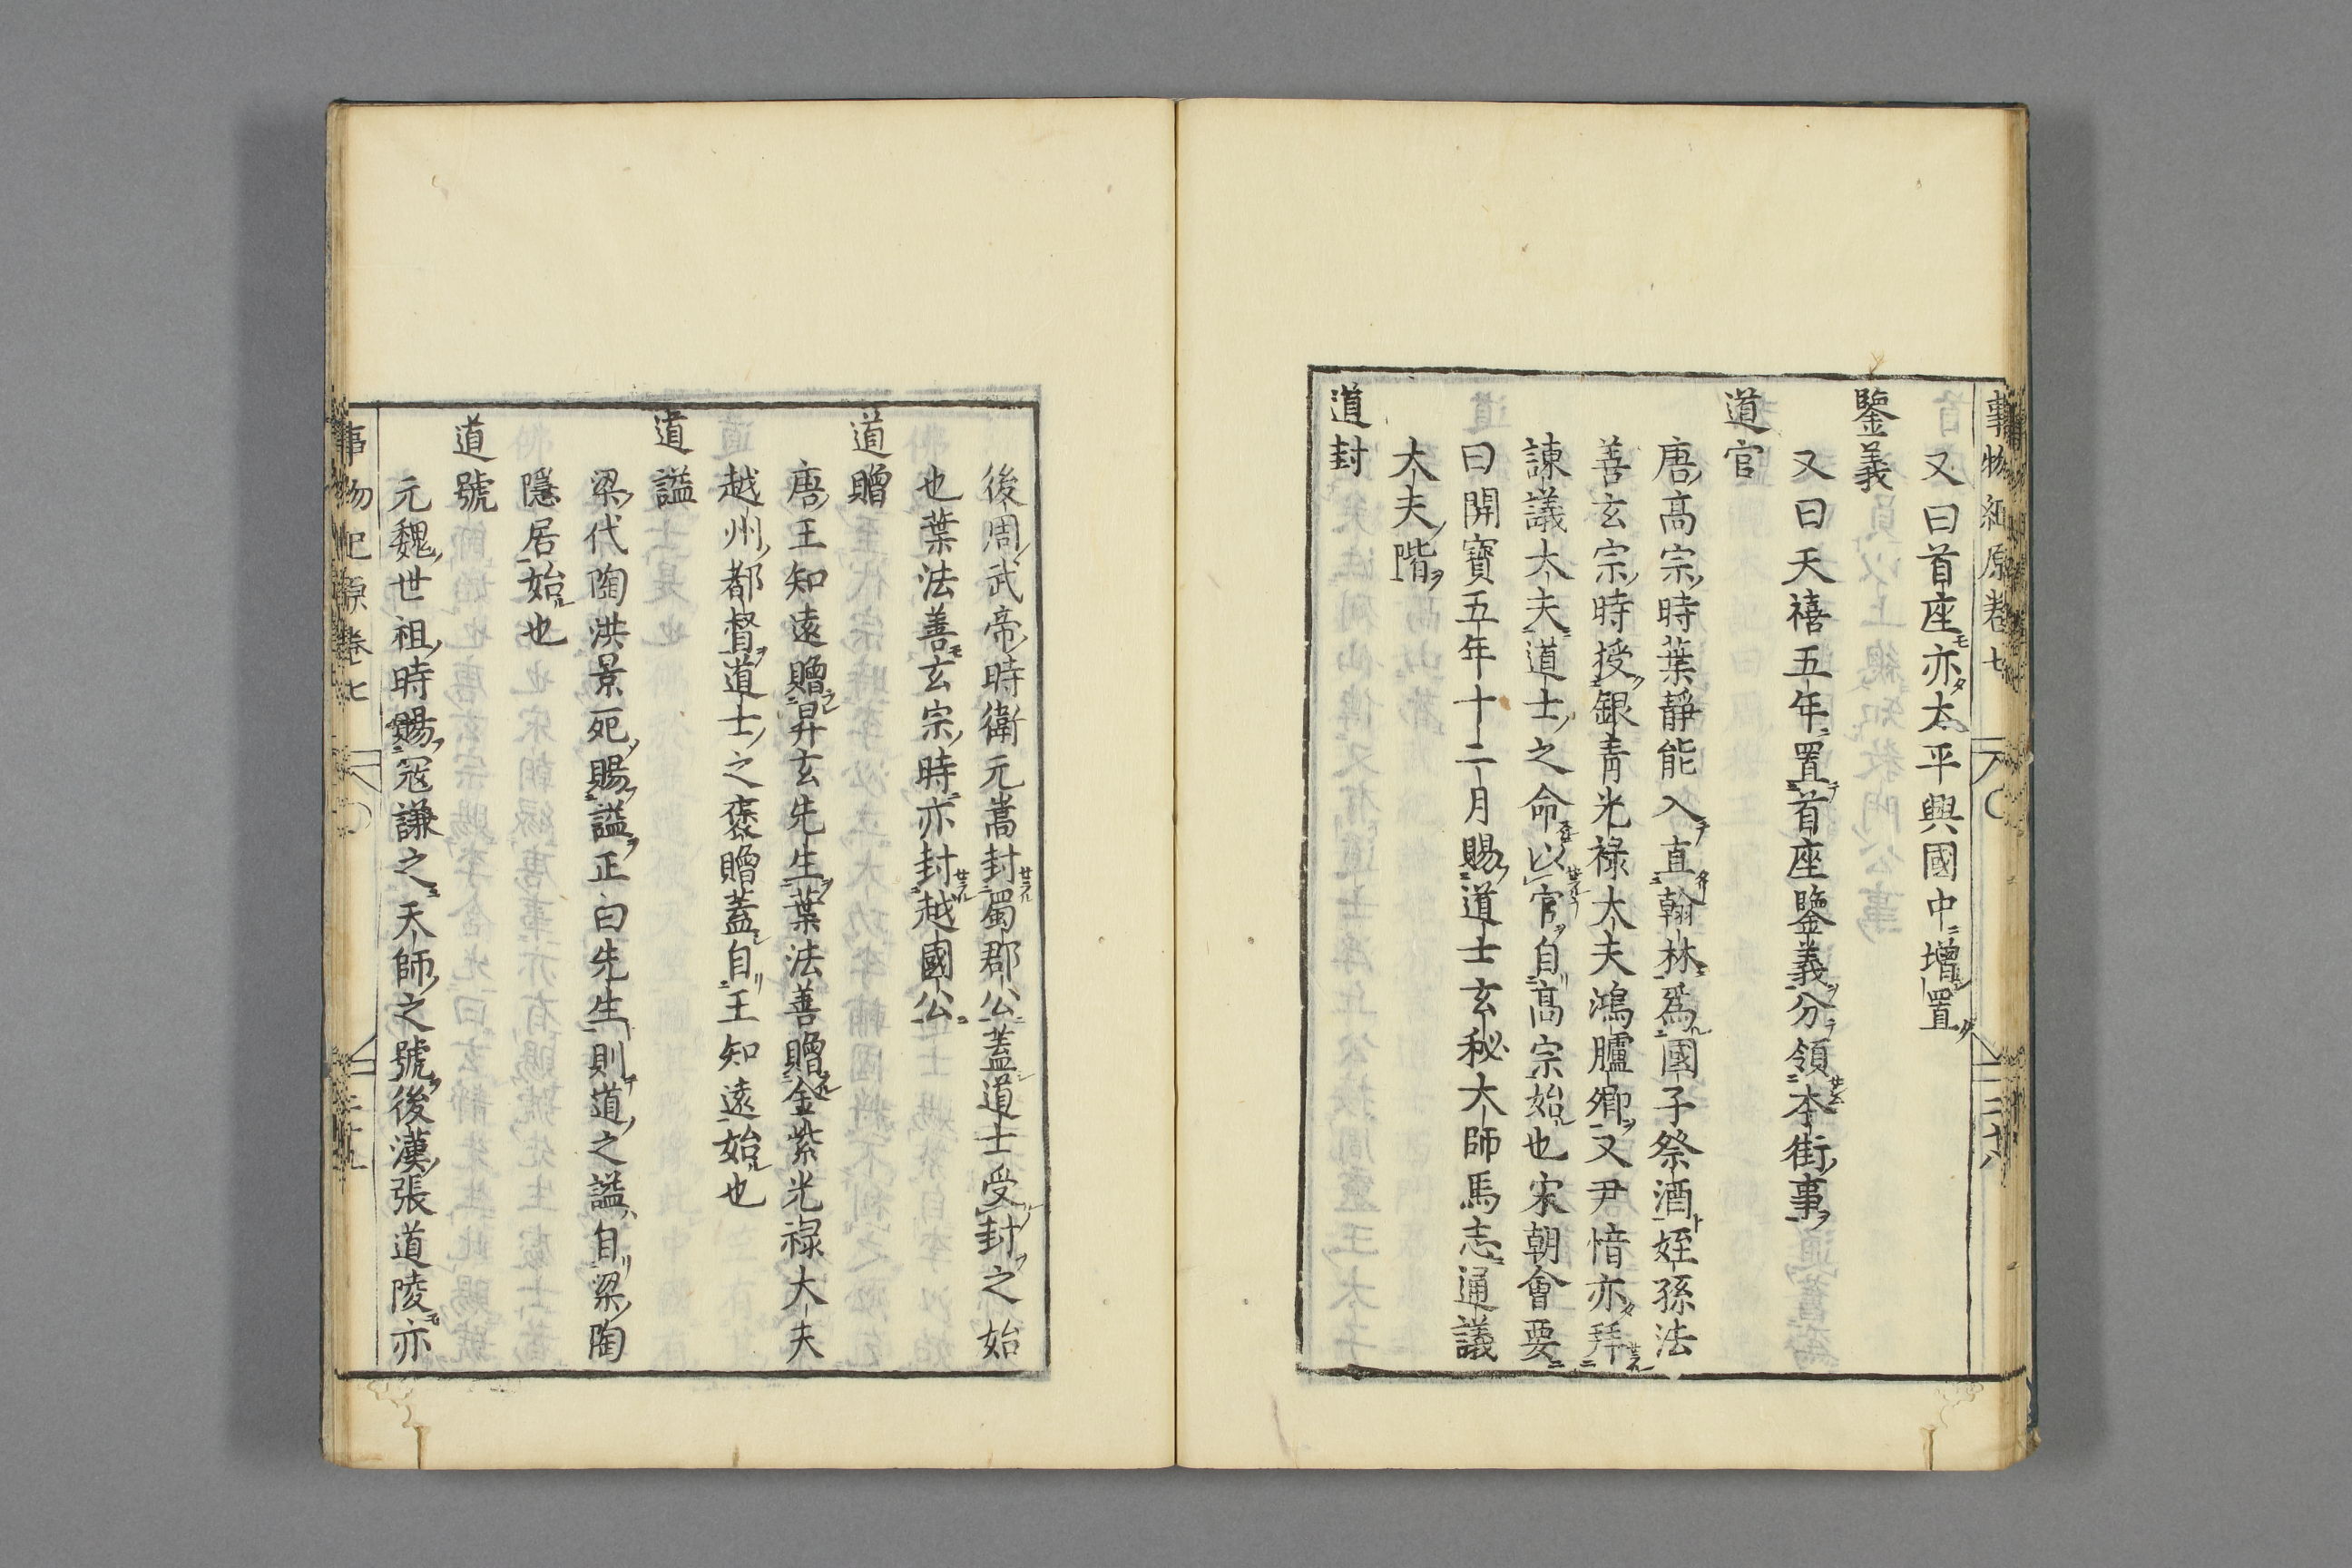 事物紀原卷七
又曰首座亦太平興國中增置
鑒義
又曰天禧五年置首座鑒義分領本街事
道官
唐高宗時葉靜能入直翰林爲國子祭酒姪孫法
善玄宗時授銀青光祿大夫鴻臚卿又尹愔亦拜
諫議大夫道士之命以官自高宗始也宋朝會要
曰開寶五年十二月賜道士玄秘大師馬志通議
大夫階
道封
後周武帝時衛元嵩封蜀郡公蓋道士受封之始
也葉法善玄宗時亦封越國公
道贈
唐王知遠贈昇玄先生葉法善贈金紫光祿大夫
越州都督道士之褒贈蓋自王知遠始也
道謚
梁代陶洪景死賜謚正白先生則道之謚自梁陶
隱居始也
道號
元魏世祖時賜寇謙之天師之號後漢張道陵亦
事物紀原卷七